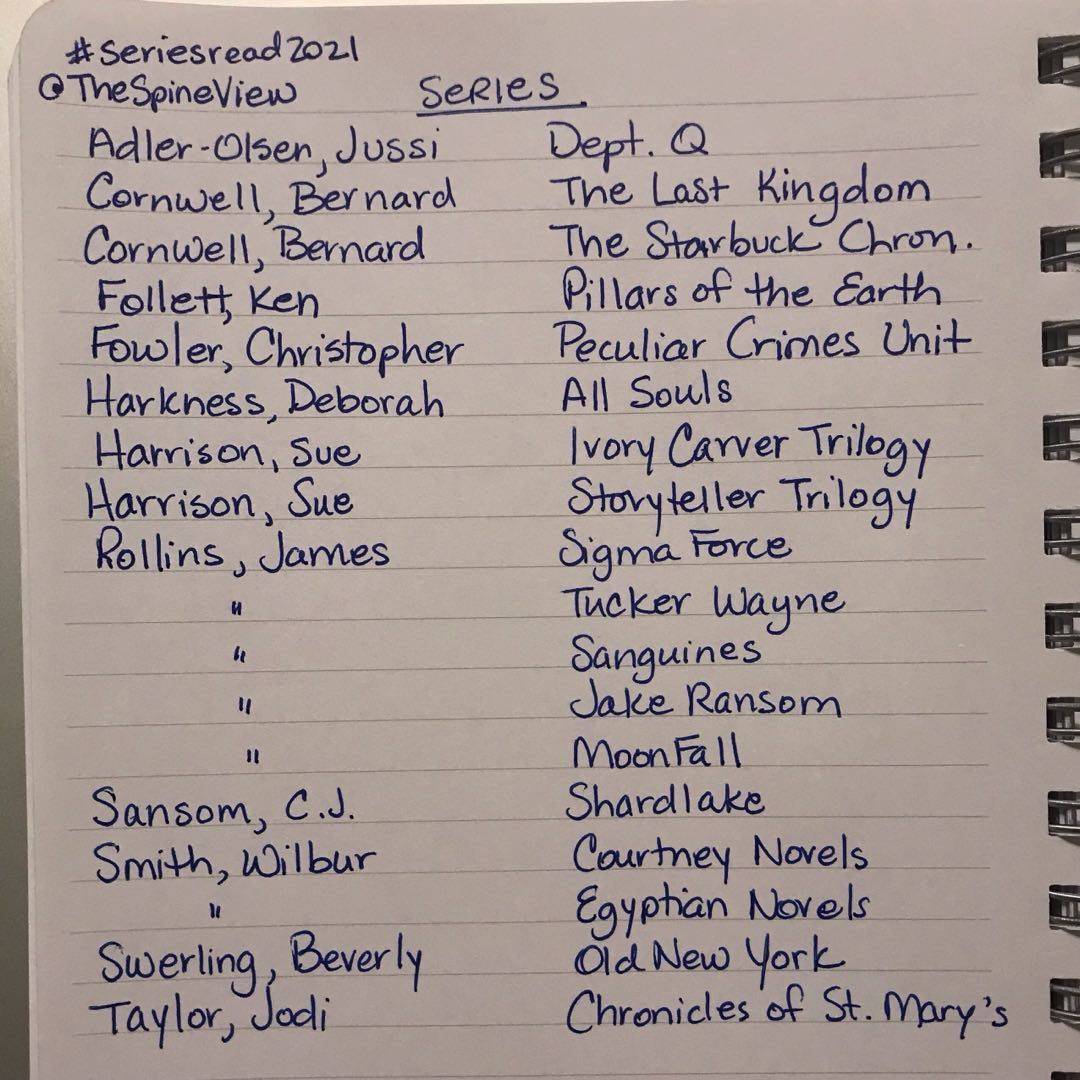 #seriesread2021
@TheSpineView SERIES
Adler-Olsen, Jussi Dept. Q
Cornwell, Bernard The Last Kingdom
Cornwell, Bernard The Starbuck Chron.
Follett, Ken Pillars of the Earth
Fowler, Christopher Peculiar Crimes Unit
Harkness, Deborah All Souls
Harrison, Sue Ivory Carver Trilogy
Harrison, Sue Storyteller Trilogy
Rollins, James Sigma Force
" Tucker Wayne
" Sanguines
" Jake Ransom
" MoonFall
Sansom, C.J. Shardlake
Smith, Wilbur Courtney Novels
" Egyptian Novels
Swerling, Beverly Old New York
Taylor, Jodi Chronicles of St. Mary's